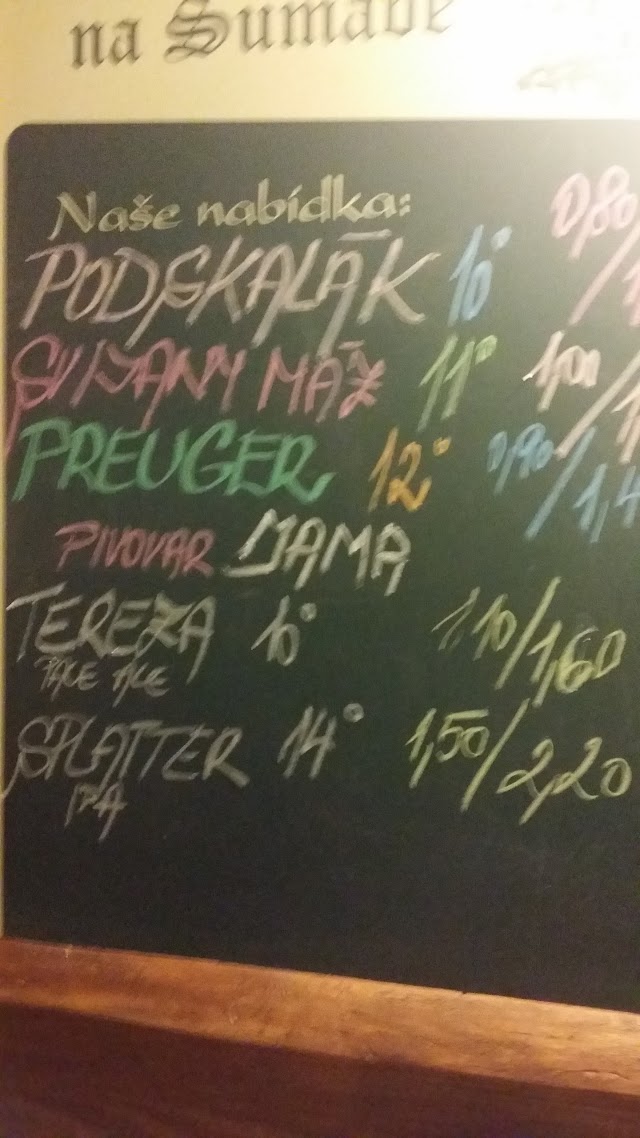 na Šumavě
Naše nabídka:
PODSKALÁK 10° 0,80/
SVIJANY MÁZ 11° 1,00/
PREUGER 12° 0,90/1,4
PIVOVAR JAMA
TEREZA 10° 1,10/1,60
PALE ALE
SPLATTER 14° 1,50/2,20
IPA